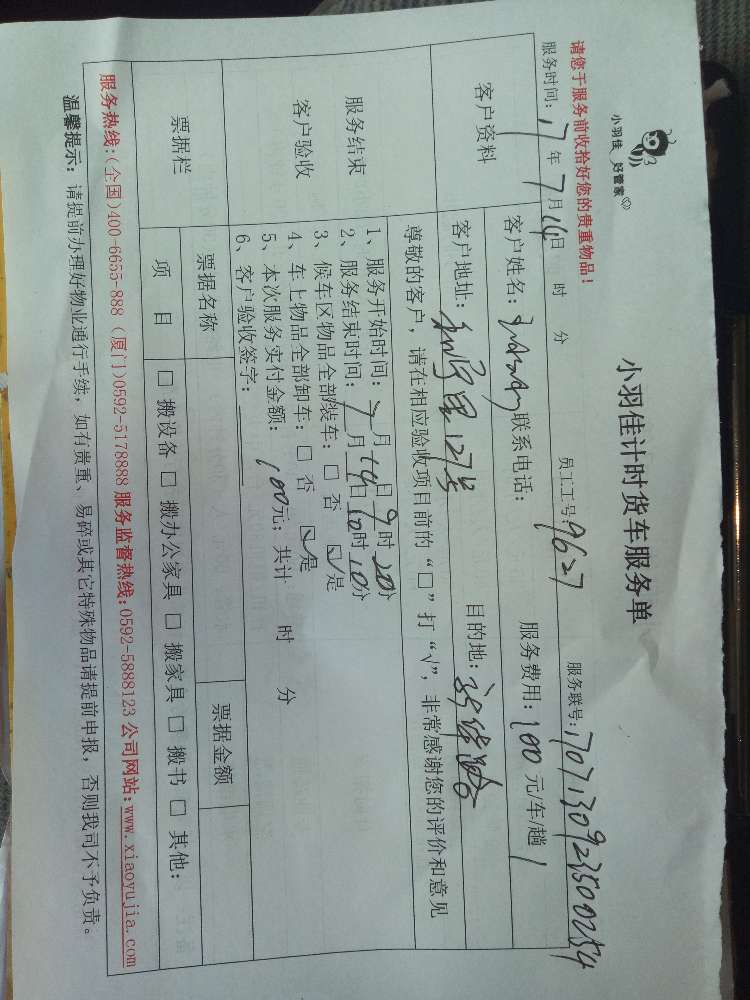 小羽佳 好管家
小羽佳计时货车服务单
请您于服务前收拾好您的贵重物品！
服务时间：17年7月14日 时 分 员工工号：9627 服务联号：1707130923500254
客户资料
客户姓名： 联系电话： 服务费用：100元/车/趟
客户地址： 127号 目的地：
服务结束
客户验收
尊敬的客户，请在相应验收项目前的“□”打“√”，非常感谢您的评价和意见
1、服务开始时间：7月14日9时20分
2、服务结束时间：7月14日10时10分
3、候车区物品全部装车：□ 否 ☑是
4、车上物品全部卸车：□ 否 ☑是
5、本次服务实付金额：100元；共计 时 分
6、客户验收签字：
票据栏
票据名称 票据金额
项 目 □ 搬设备 □ 搬办公家具 □ 搬家具 □ 搬书 □ 其他：
服务热线：(全国)400-6655-888 (厦门)0592-5178888 服务监督热线：0592-5888123 公司网站：www.xiaoyujia.com
温馨提示：请提前办理好物业通行手续，如有贵重、易碎或其它特殊物品请提前申报，否则我司不予负责。